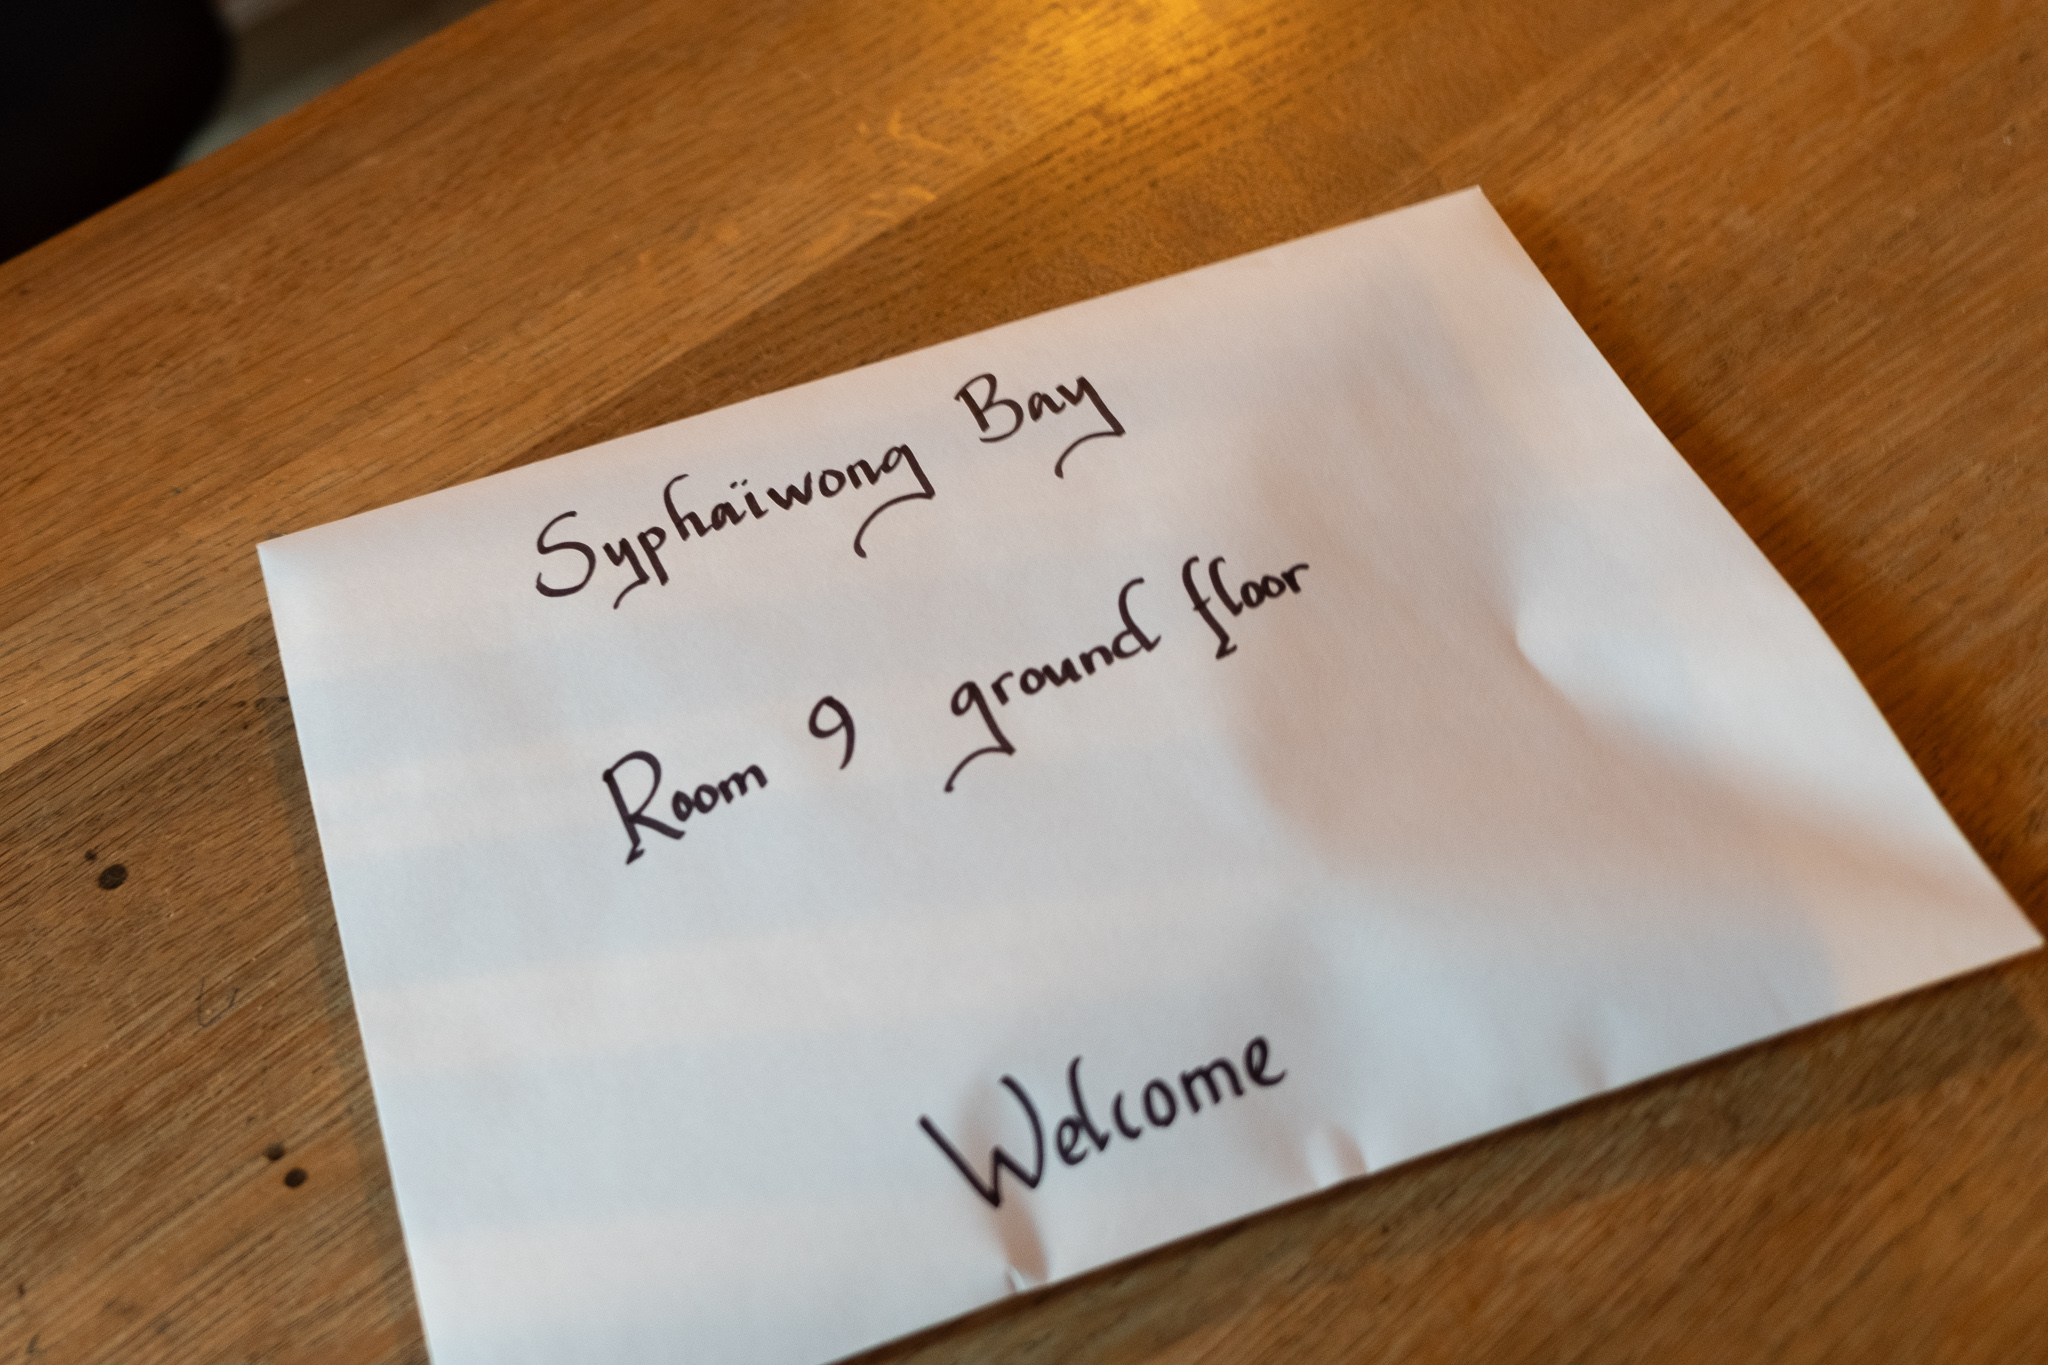 Syphaïwong Bay
Room 9 ground floor
Welcome